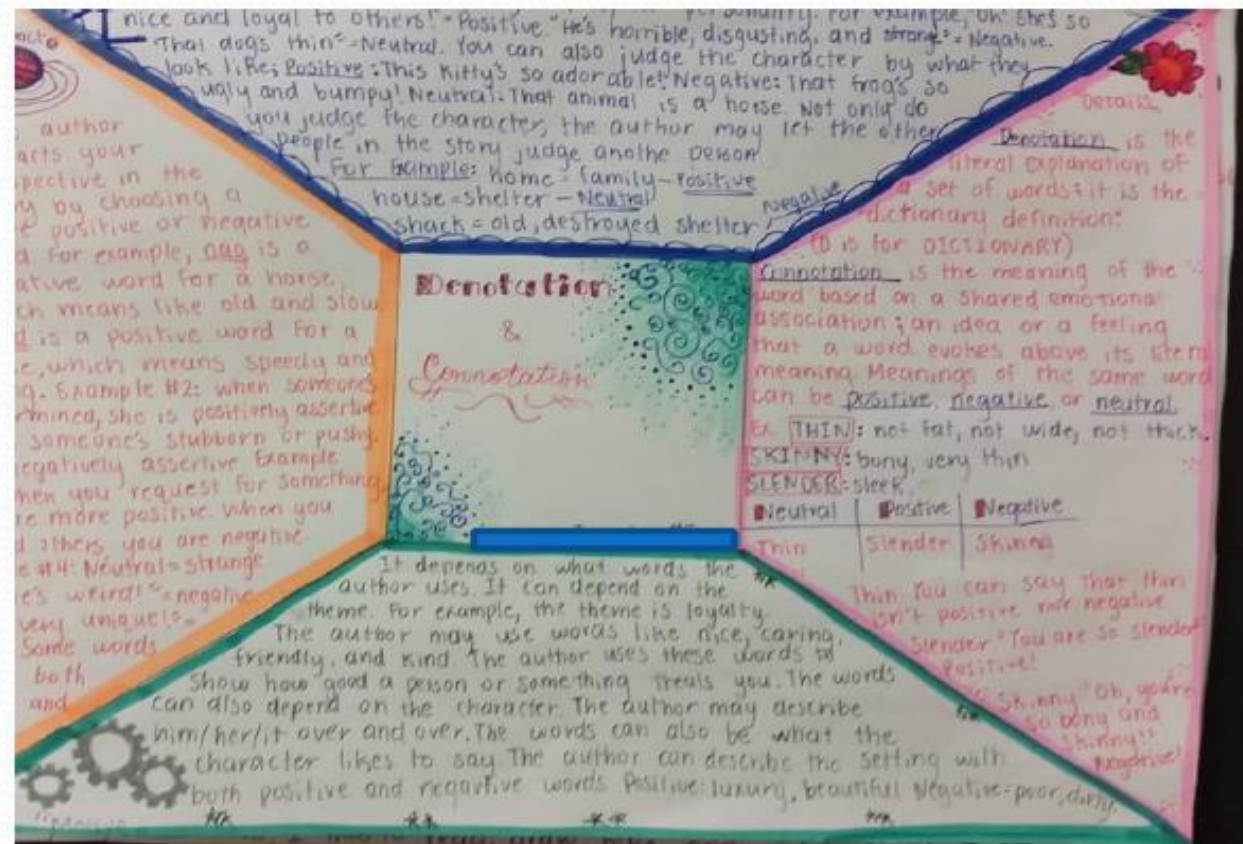 nice and loyal to others!" = Positive. "He's horrible, disgusting, and strange" = Negative.
That dogs thin" = Neutral. You can also judge the character by what they
look like; Positive: This Kitty's so adorable! Negative: That frog's so
ugly and bumpy! Neutral: That animal is a horse. Not only do
you judge the character, the author may let the other
people in the story judge anothe person
For Example: home = family - Positive
house = shelter - Neutral
shack = old, destroyed shelter Negative
author
acts your
pective in the
by choosing a
positive or negative
For example, nag is a
ative word for a horse,
ch means like old and slow
is a positive word for a
e, which means speedy and
g. Example #2: when someone's
rmined, she is positively assertive
someone's stubborn or pushy,
egatively assertive Example
hen you request for something,
re more positive. When you
d others, you are negative
e #4: Neutral = strange
e's weird!" = negative
very unique!" =
Some words
both
and
Denotation
&
Connotation
Details
Denotation is the
literal explanation of
a set of words; it is the
dictionary definition:
(D is for DICTIONARY)
Connotation is the meaning of the
word based on a shared emotional
association; an idea or a feeling
that a word evokes above its literal
meaning. Meanings of the same word
can be positive, negative, or neutral.
Ex. THIN: not fat, not wide, not thick.
SKINNY: bony, very thin
SLENDER: sleek
Neutral Positive Negative
Thin Slender Skinny
Thin You can say that thin
isn't positive nor negative
Slender "You are so slender"
Positive!
Skinny "Oh, you're
so bony and
skinny!"
Negative!
It depends on what words the
author uses. It can depend on the
theme. For example, the theme is loyalty.
The author may use words like nice, caring,
friendly, and kind. The author uses these words to
show how good a person or something treats you. The words
can also depend on the character. The author may describe
him/her/it over and over. The words can also be what the
character likes to say. The author can describe the setting with
both positive and negavtive words Positive: luxury, beautiful Negative: poor, dirty.